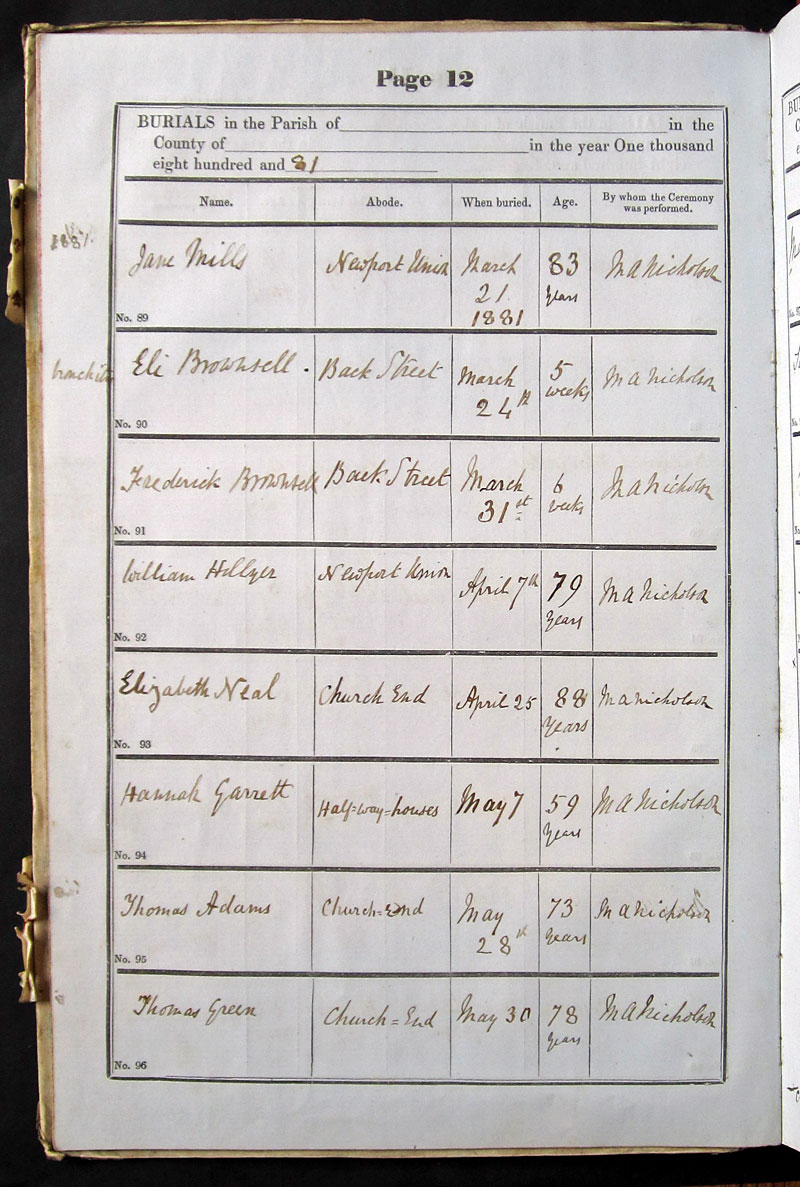 Page 12
BURIALS in the Parish of in the
County of in the year One thousand
eight hundred and 81
Name. Abode. When buried. Age. By whom the Ceremony
was performed.
1881.
Jane Mills Newport Union March 83 M A Nicholson
21 Years
No. 89 1881
bronchitis Eli Brownsell. Back Street March 5 M A Nicholson
24th weeks
No. 90
Frederick Brownsell Back Street March 6 M A Nicholson
31st weeks
No. 91
William Hillyer Newport Union April 7th 79 M A Nicholson
Years
No. 92
Elizabeth Neal Church End April 25 88 M A Nicholson
Years
No. 93
Hannah Garrett Half=way=houses May 7 59 M A Nicholson
Years
No. 94
Thomas Adams Church=End May 73 M A Nicholson
28th Years
No. 95
Thomas Green Church=End May 30 78 M A Nicholson
Years
No. 96